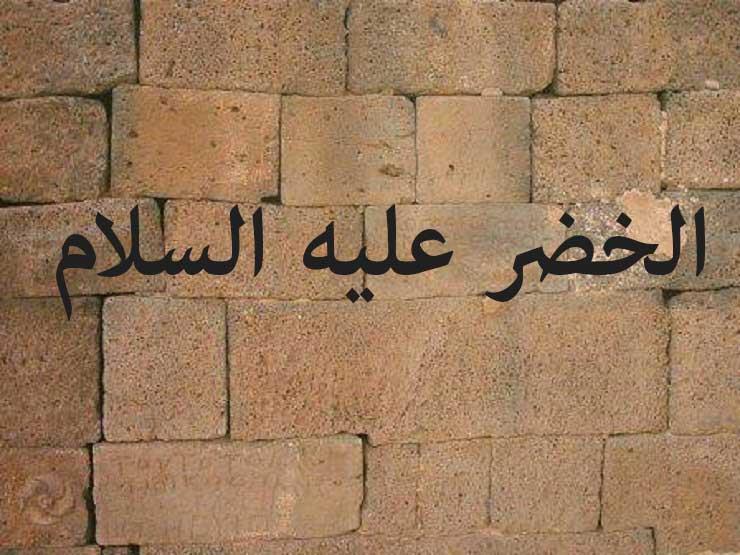 الخضر عليه السلام